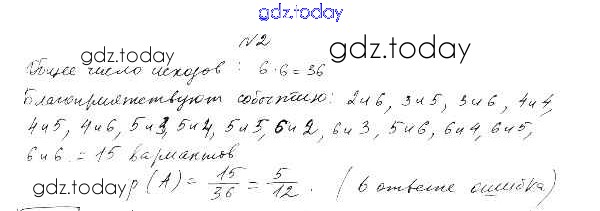 gdz.today
№2
gdz.today
Общее число исходов : 6·6=36
gdz.today
Благоприятствуют событию: 2и6, 3и5, 3и6, 4и4,
4и5, 4и6, 5и3, 5и4, 5и5, 6и2, 6и3, 5и6, 6и4, 6и5,
6и6 = 15 вариантов
gdz.today
p(A) = 15/36 = 5/12. (в ответе ошибка)